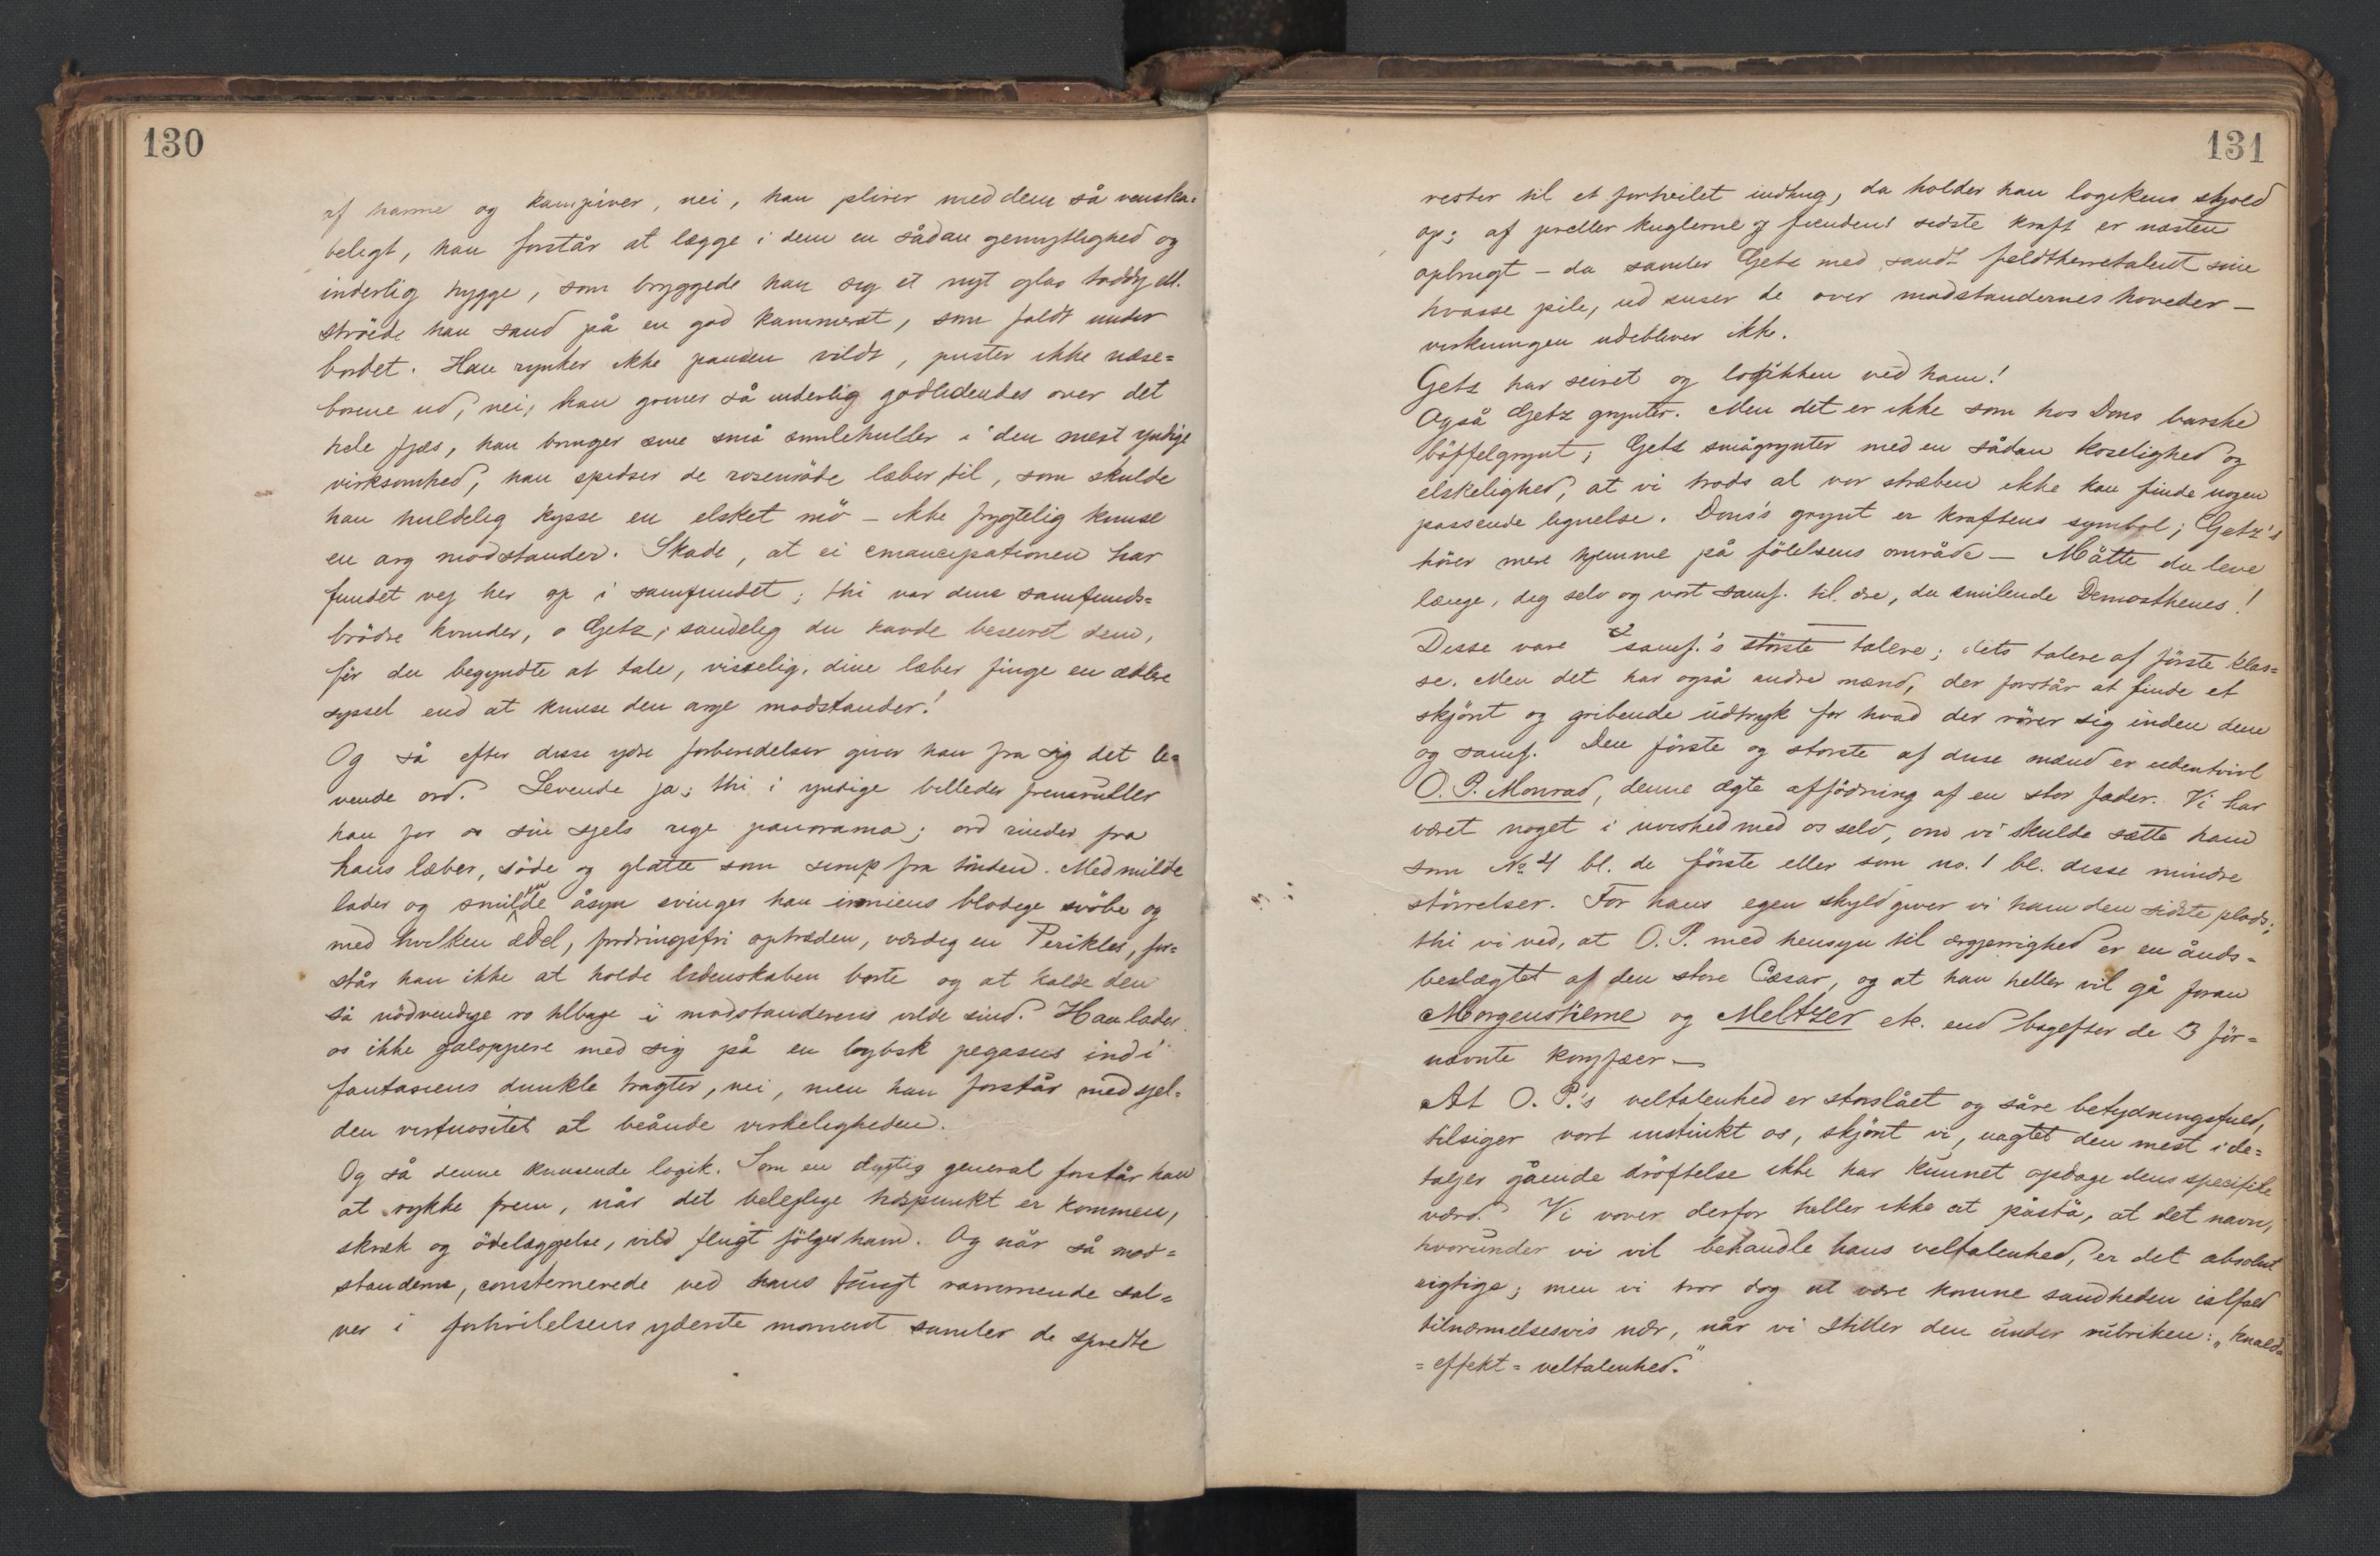 130
af harme og kampiver, nei, han plirer med dem så venska=
beligt, han forstår at lægge i dem en sådan gemytlighed og
inderlig hygge, som bryggede han sig et nyt glas toddy ell.
ströede han sand på en god kammerat, som faldt under
bordet. Han rynker ikke panden vildt, puster ikke næse=
borene ud, nei, han griner så inderlig godlidendes over det
hele fjæs, han bringer sine små smilehuller i den mest yndige
virksomhed, han spidser de rosenröde læber til, som skulde
han huldelig kysse en elsket mö – ikke frygtelig knuse
en arg modstander. Skade, at ei emancipationen har
fundet vej her op i samfundet; thi var dine samfunds=
brödre kvinder, o Getz, sandelig du havde beseiret dem,
för du begyndte at tale, visselig, dine læber finge en ædlere
syssel end at knuse den arge modstander!
Og så efter disse ydre forberedelser giver han fra sig det le=
vende ord. Levende ja; thi i yndige billeder fremruller
han for os sin sjels rige panorama; ord rinder fra
hans læber, söde og glatte som sirup fra tönden. Med milde
lader og smilende åsyn svinger han ironiens blodige svöbe og
med hvilken ædel, fordringsfri optræden, værdig en Perikles, for=
står han ikke at holde lidenskaben borte og at kalde den
så nödvendige ro tilbage i modstanderens vilde sind. Han lader
os ikke galoppere med sig på en lybsk pegasus ind i
fantasiens dunkle tragter, nei, men han forstår med sjel=
den virtuositet at beånde virkeligheden.
Og så denne knusende logik. Som en dygtig general forstår han
at rykke frem, når det beleilige tidspunkt er kommen,
skræk og ödelæggelse, vild flugt fölger ham. Og når så mod=
standerne, consternerede ved hans tungt rammende sal=
ver i fortvilelsens yderste moment samler de spredte
131
rester til et fortvilet indhug, da holder han logikens skjold
op; af preller kuglerne og fiendens sidste kraft er næsten
opbrugt – da samler Getz med sandt feldtherretalent sine
hvasse pile, ud suser de over modstandernes hoveder –
virkningen udebliver ikke.
Getz har seiret og logikken ved ham!
Også Getz grynter. Men det er ikke som hos Dons barske
böffelgrynt; Getz smågrynter med en sådan koselighed og
elskelighed, at vi trods al vor stræben ikke kan finde nogen
passende lignelse. Dons's grynt er kraftens symbol; Getz's
hörer mere hjemme på fölelsens område – Måtte du leve
længe, dig selv og vort samf. til ære, du smilende Demosthenes!
Disse vare samf.'s störste talere; dets talere af förste klas=
se. Men det har også andre mænd, der forstår at finde et
skjönt og gribende udtryk for hvad der rörer sig inden dem
og samf. Den förste og störste af disse mænd er udentvivl
O. P. Monrad, denne ægte affödning af en stor fader. Vi har
været noget i uvished med os selv, om vi skulde sætte ham
som No 4 bl. de förste eller som no. 1 bl. disse mindre
störrelser. For hans egen skyld giver vi ham den sidste plads;
thi vi ved, at O. P. med hensyn til ærgjerrighed er en ånds=
beslægtet af den store Cæsar, og at han heller vil gå foran
Morgenstierne og Meltzer etc. end bagefter de 3 för=
nævnte koryfæer –
At O. P.'s veltalenhed er storslået og såre betydningsfuld,
tilsiger vort instinkt os, skjönt vi, uagtet den mest i de=
taljer gående dröftelse ikke har kunnet opdage dens specifike
værd. Vi vover derfor heller ikke at påstå, at det navn,
hvorunder vi vil behandle hans veltalenhed, er det absolut
rigtige; men vi tror dog at være komne sandheden ialfald
tilnærmelsesvis nær, når vi stiller den under rubriken: „knald=
=effekt=veltalenhed."